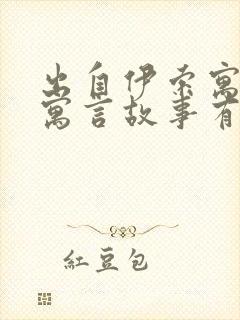 出自伊索寓
寓言故事有
紅豆包